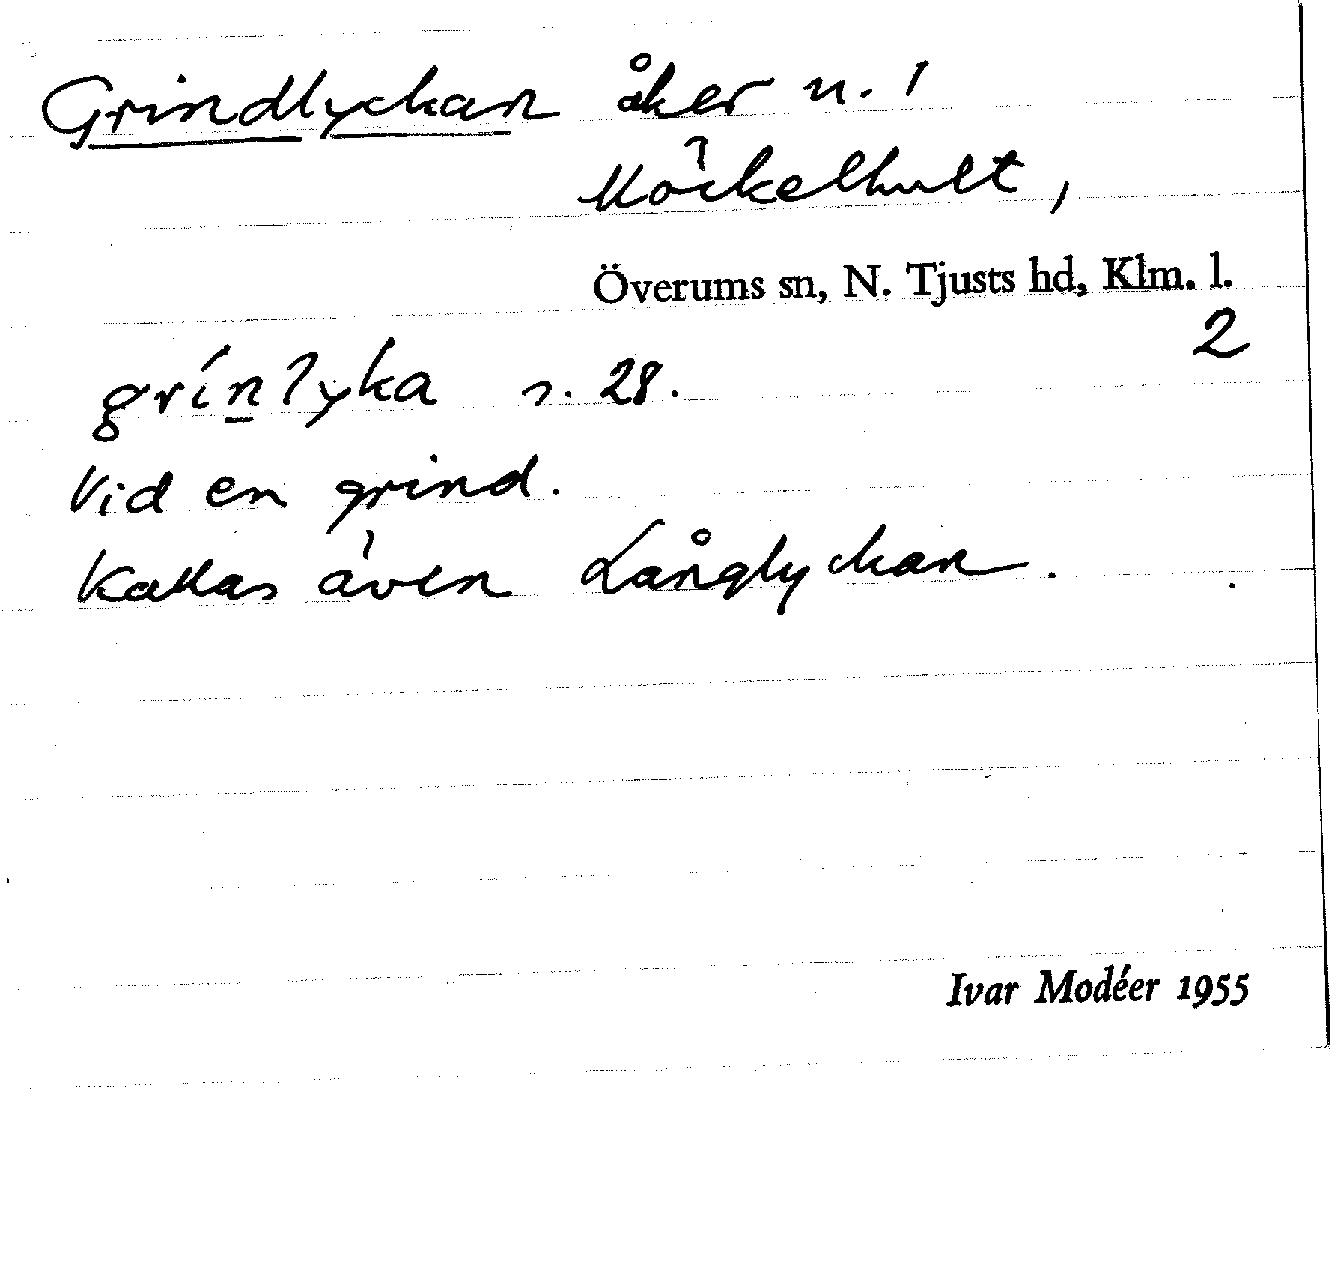 Grindlyckan åker n. 1
Möckelhult,
Överums sn, N. Tjusts hd, Klm. l.
2
grínlyka s. 28.
Vid en grind.
Kallas även Långlyckan.
Ivar Modéer 1955